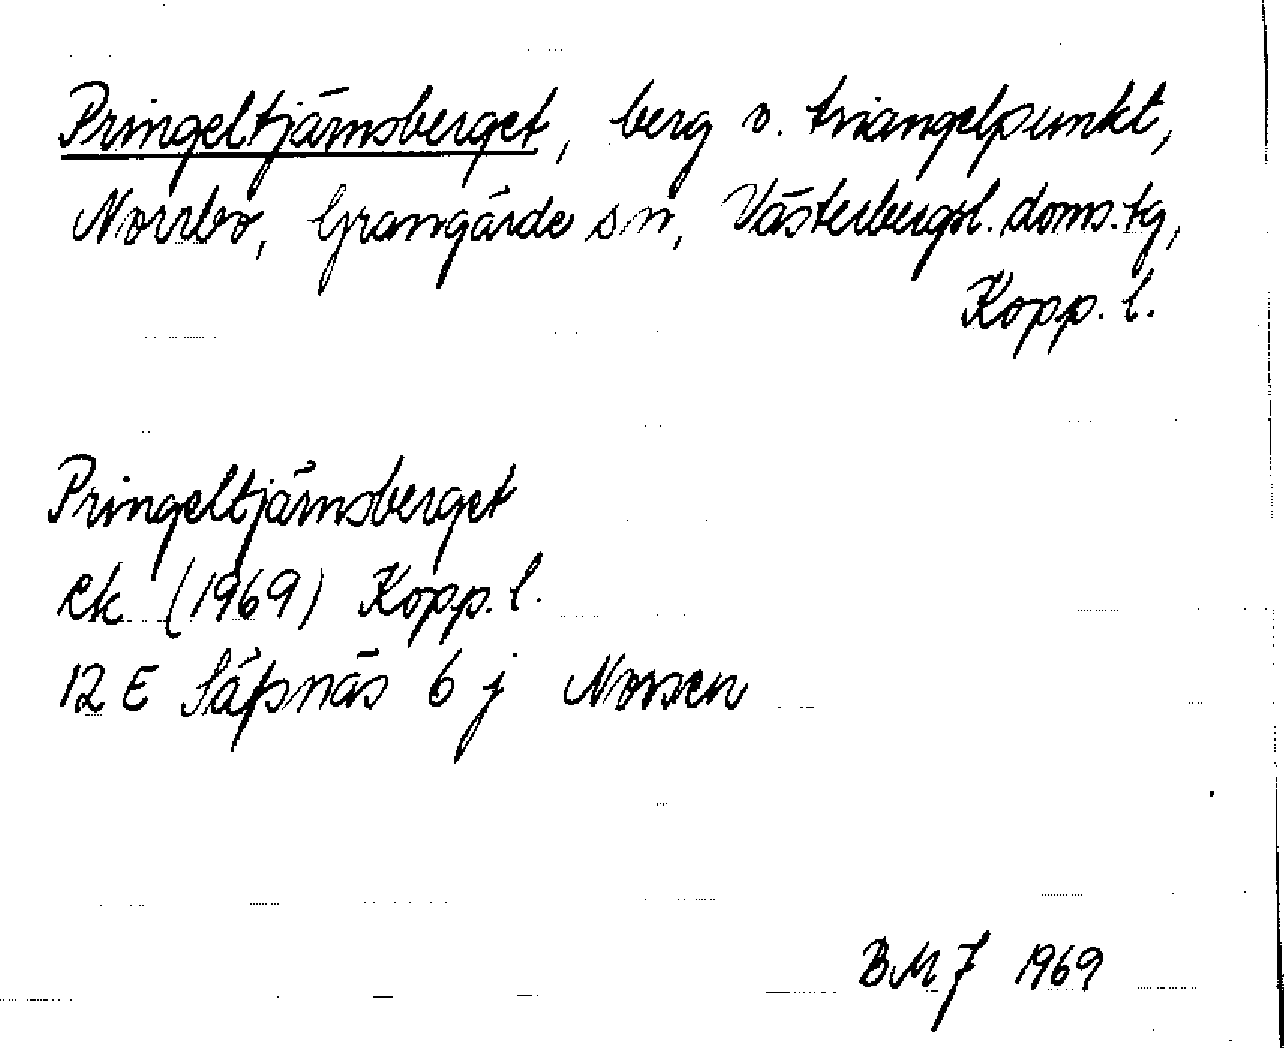 Pringeltjärnsberget, berg o. triangelpunkt,
Norrbo, Grangärde sn, Västerbergsl. doms.tg,
Kopp. l.
Pringeltjärnsberget
ek (1969) Kopp. l.
12 E Säfsnäs 6 j Norsen
BMJ 1969